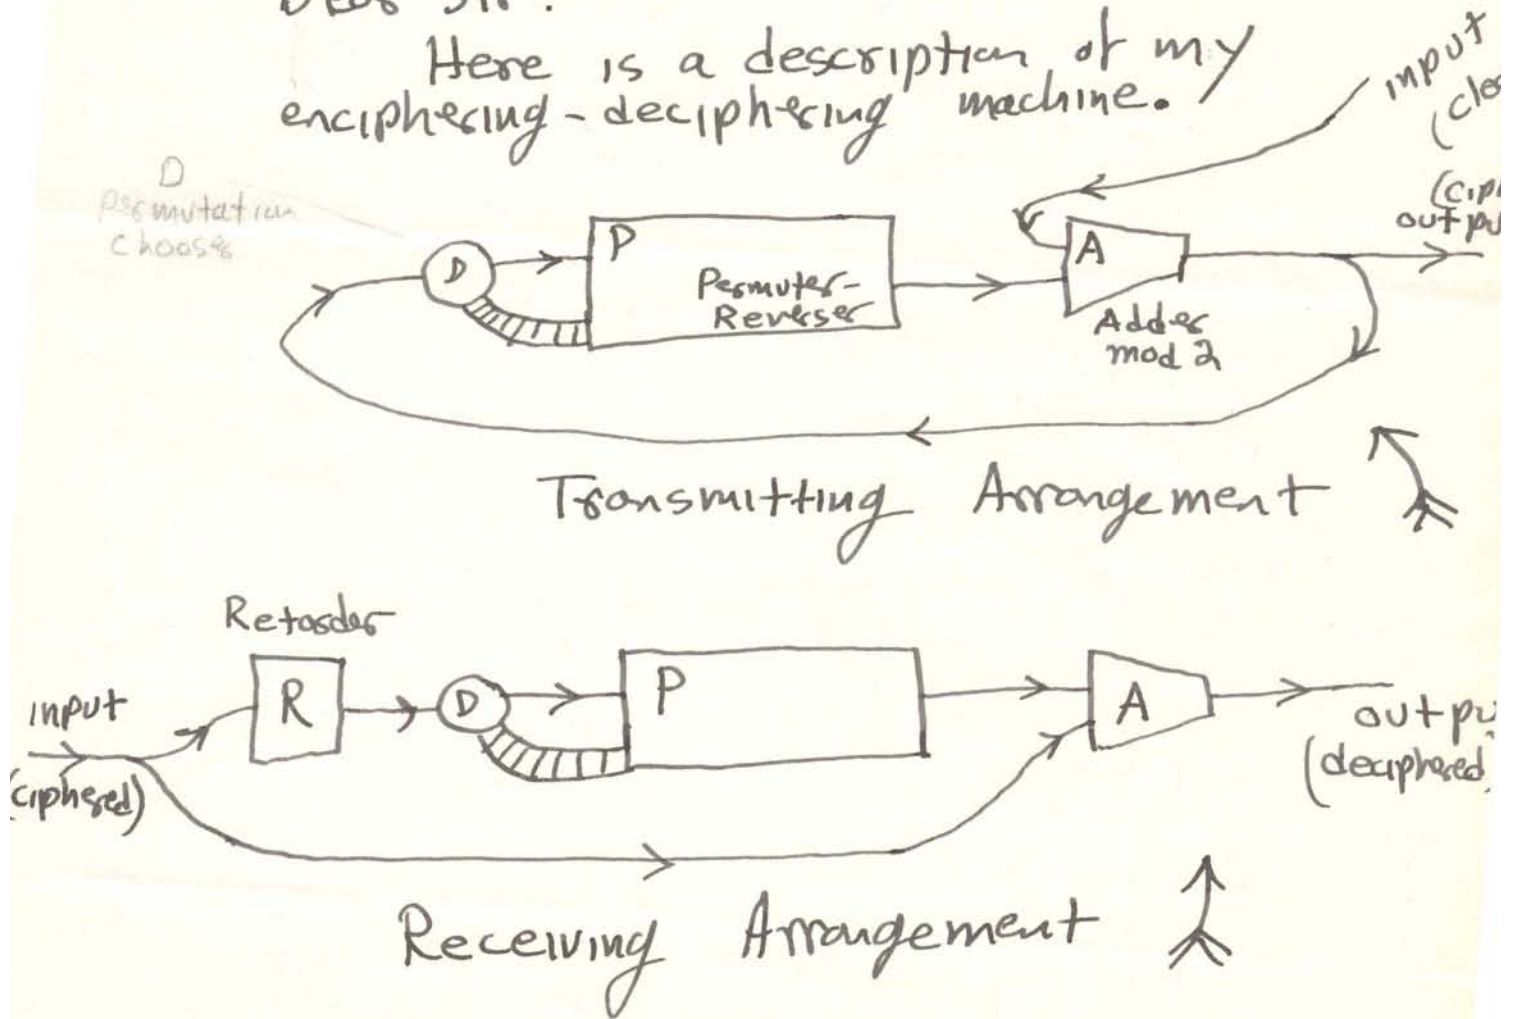 Here is a description of my
enciphering-deciphering machine.
input
D
permutation
chooser
D
P
Permuter-
Reverser
A
Adder
mod 2
Transmitting Arrangement
Retarder
input
(ciphered)
R
D
P
A
(deciphered)
Receiving Arrangement